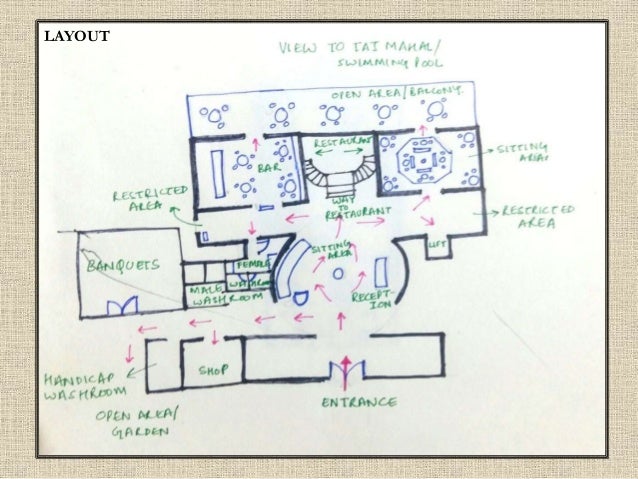 LAYOUT
VIEW TO TAJ MAHAL/
SWIMMING POOL
OPEN AREA/BALCONY.
RESTAURANT
BAR
SITTING
AREA
RESTRICTED
AREA
WAY
TO
RESTAURANT
RESTRICTED
AREA
SITTING
AREA
LIFT
BANQUETS
FEMALE
WASHROOM
MALE
WASHROOM
RECEPT-
ION
SHOP
HANDICAP
WASHROOM
ENTRANCE
OPEN AREA/
GARDEN